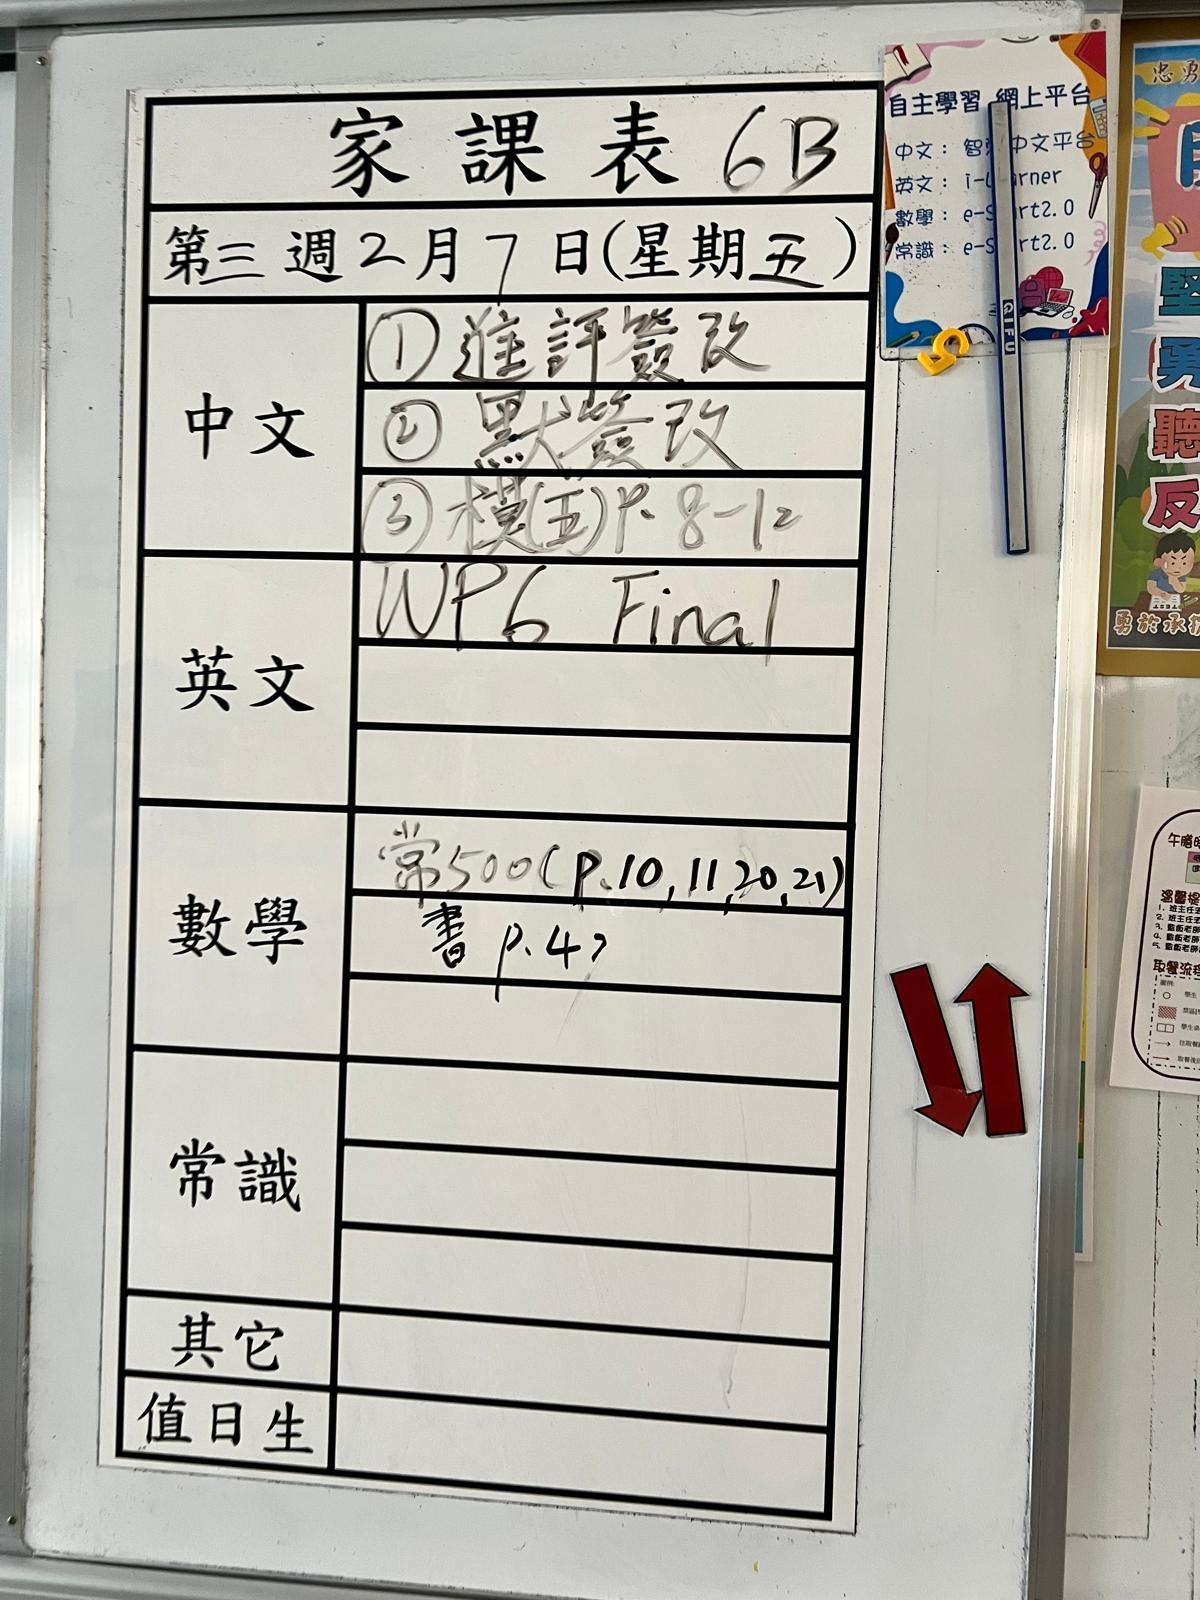 家課表 6B
第三週2月7日(星期五)
中文
① 進評簽改
② 默簽改
③ 模(五)P. 8-12
英文
WP6 Final
數學
常500(p.10,11,20,21)
書 p.47
常識
其它
值日生
自主學習 網上平台
中文： 中文平台
英文：
數學：
常識：
QIFU
5
忠勇
堅
勇
聽
反
TEST
勇於承
午膳
溫馨提
1. 班主任
2. 班主任
3.
4.
5.
取餐流程
圖例:
學生